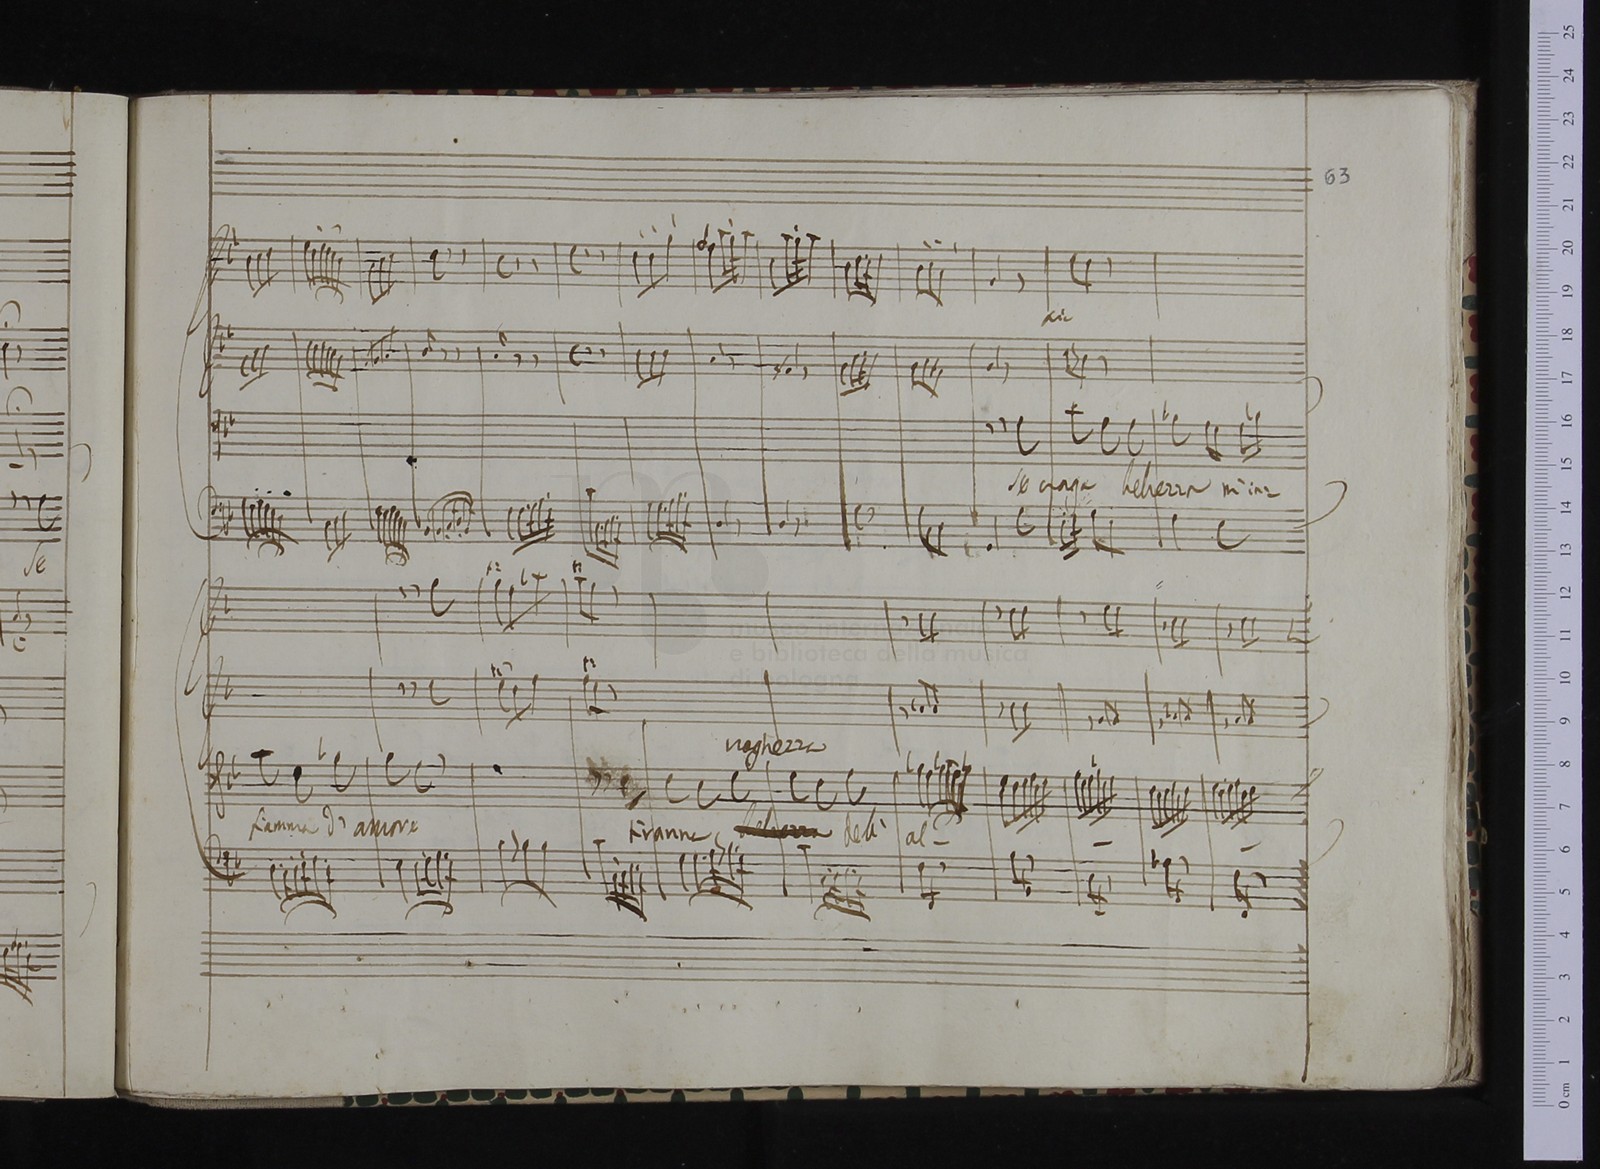 63
pia
Se vaga belezza m'in
Se
museo internazionale
e biblioteca della musica
di bologna
vaghezza
fiamma d'amore tiranna belezza del al -
25
24
23
22
21
20
19
18
17
16
15
14
13
12
11
10
9
8
7
6
5
4
3
2
1
0 cm